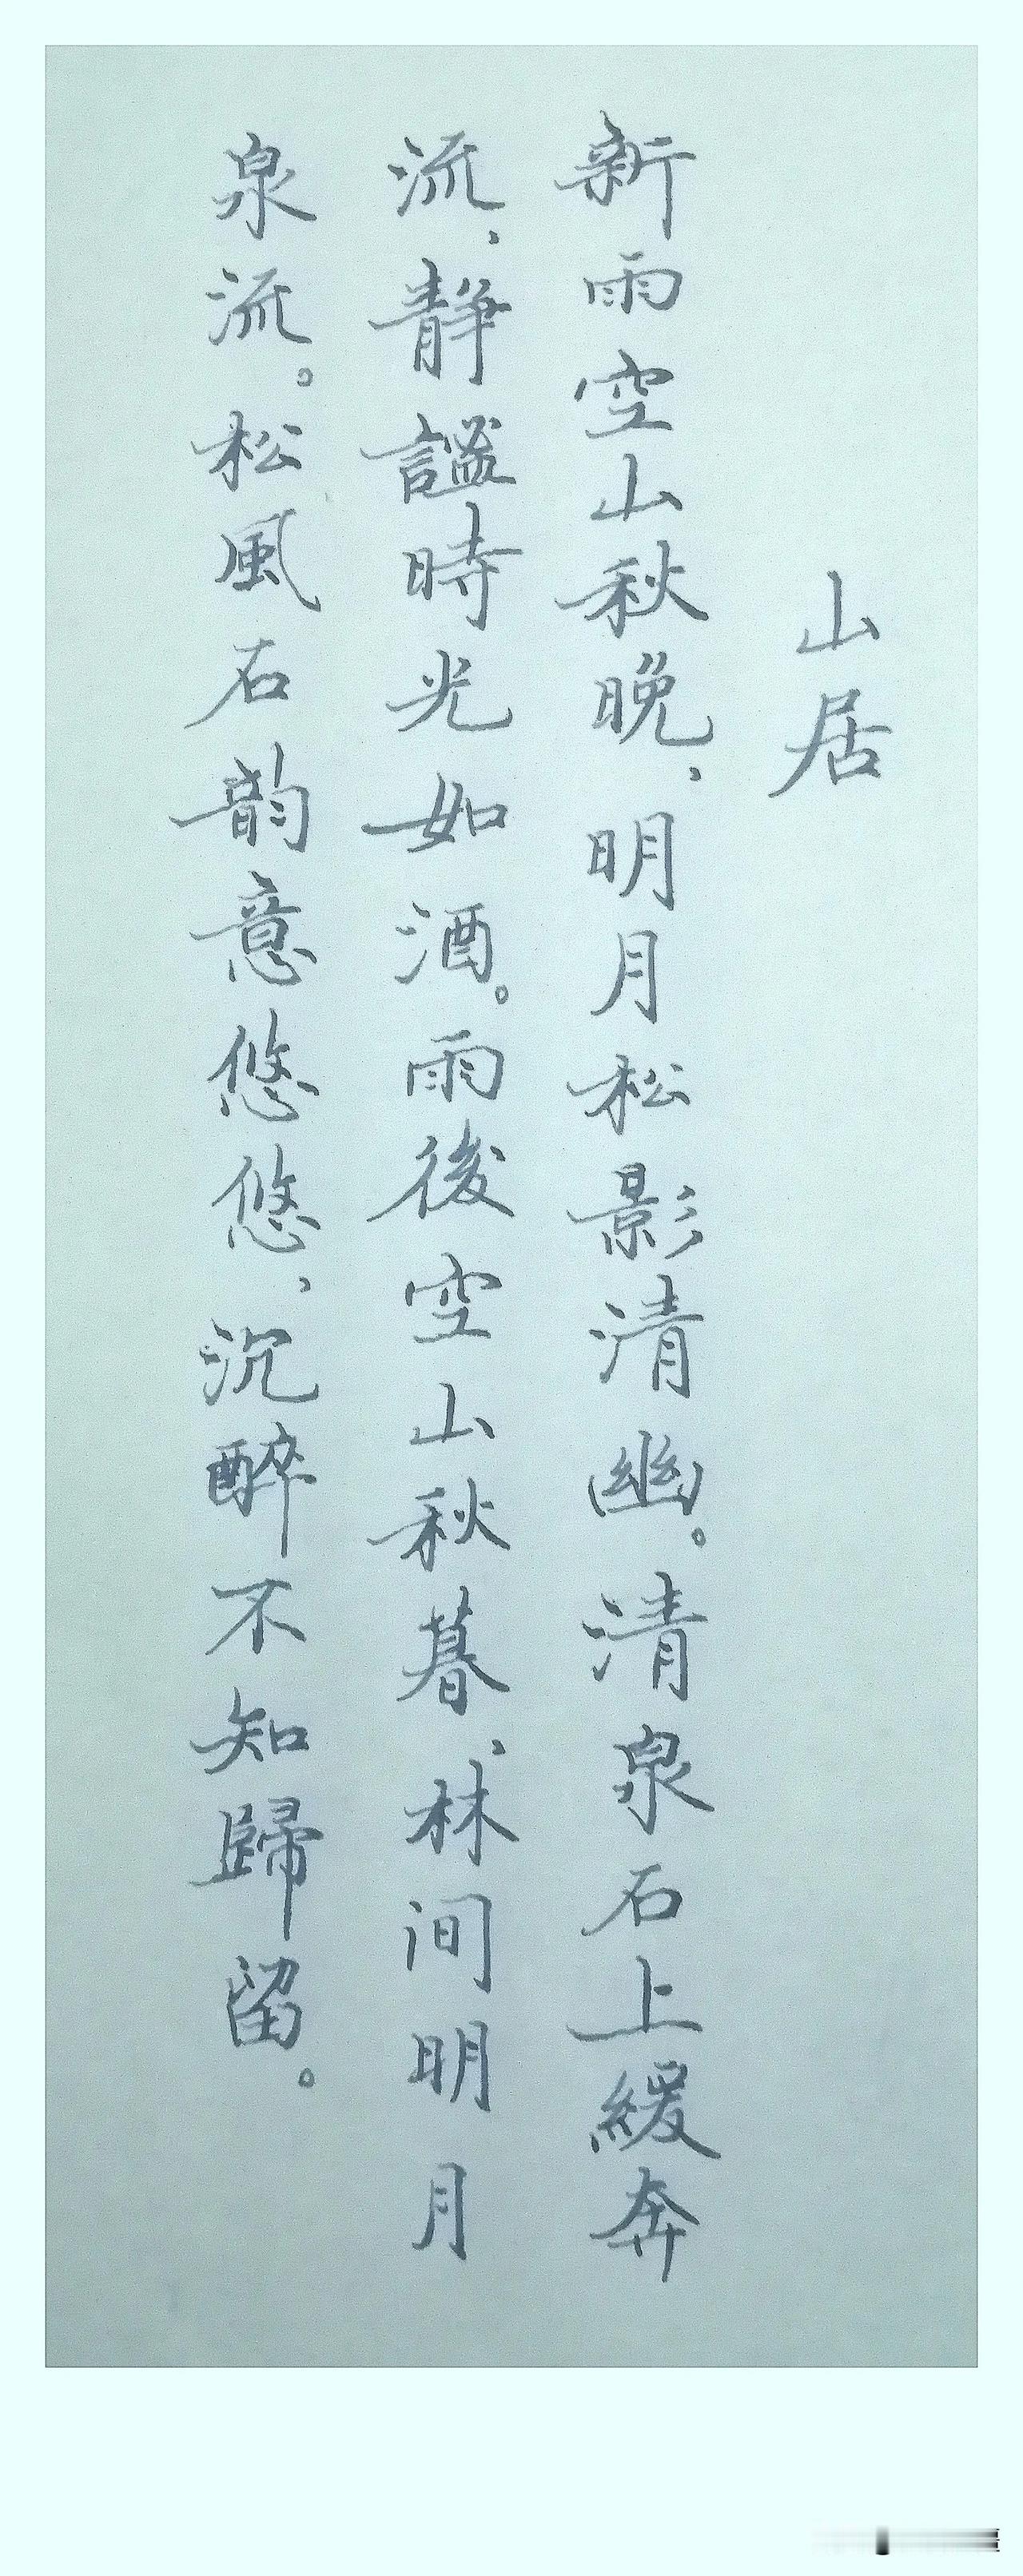 山居
新雨空山秋晚，明月松影清幽。清泉石上緩奔
流，靜謐時光如酒。雨後空山秋暮，林间明月
泉流。松風石韵意悠悠，沉醉不知歸留。